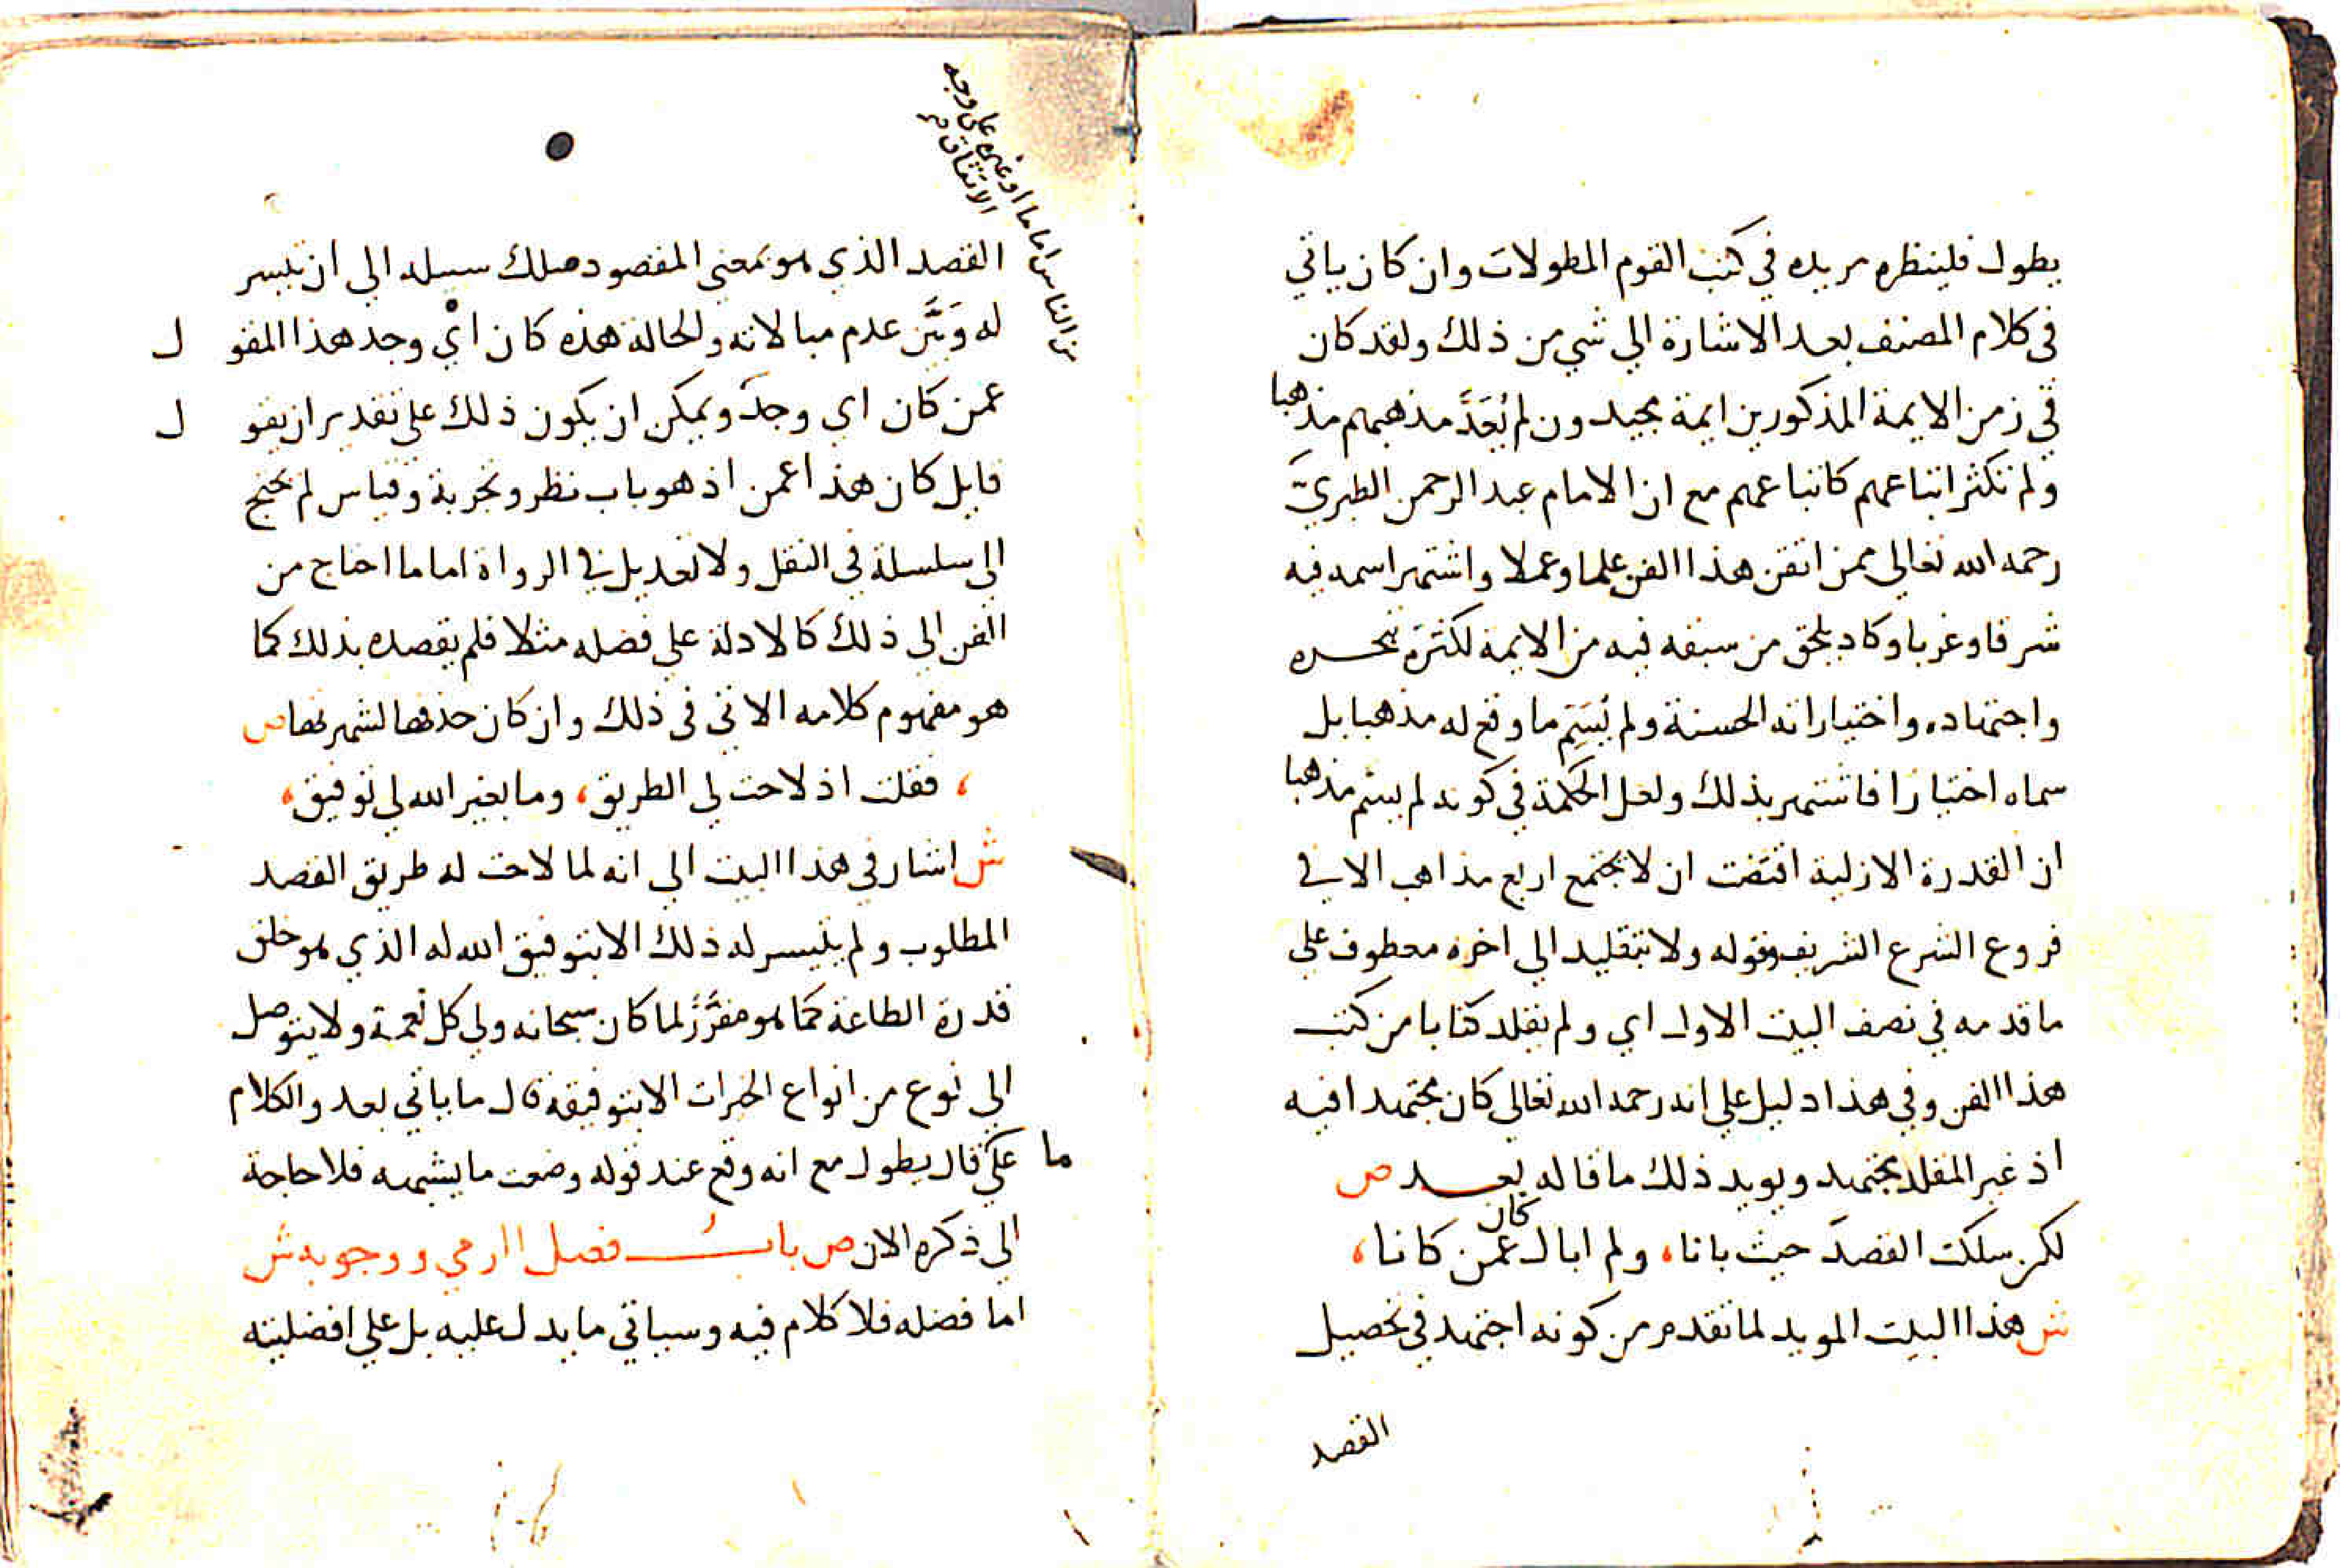 يطول فلينظره مريده في كتب القوم المطولات وان كان ياتي
في كلام المصنف بعد الاشارة الي شي من ذلك ولقد كان
في زمن الايمة المذكورين ايمة مجيدون لم يُعَدَّ مذهبهم مذهبا
ولم تكثر اتباعهم كاتباعهم مع ان الامام عبد الرحمن الطبريّ
رحمه الله تعالي ممن اتقن هذا الفن علما وعملا واشتهر اسمه فيه
شرقا وغربا وكاد يلحق من سبقه فيه من الايمة لكثرة تبحره
واجتهاده واختياراته الحسنة ولم يُسَمِّ ما وقع له مذهبا بل
سماه اختيارا فاشتهر بذلك ولعل الحكمة في كونه لم يسم مذهبا
ان القدرة الازلية اقتضت ان لا يجتمع اربع مذاهب الا في
فروع الشرع الشريف وقوله ولا بتقليد الي اخره معطوف علي
ما قدمه في نصف البيت الاول اي ولم يقلد كتابا من كتب
هذا الفن وفي هذا دليل علي انه رحمه الله تعالي كان مجتهدا فيه
اذ غير المقلد مجتهد ويويد ذلك ما قاله بعد ص
لكن سلكت القصدَ حيث بانا، ولم ابال عمن كان كانا،
ش هذا البيت المويد لما تقدم من كونه اجتهد في تحصيل
القصد
من الناس اماما او غيره علي وجه
الاتفاق
القصد الذي هو بمعني المقصود مسلك سبيله الي ان تيسر
له وَبَيَّن عدم مبالاته والحالة هذه كان ايْ وجد هذا المقول
عمن كان اي وجدَ ويمكن ان يكون ذلك علي تقدير ان يقول
قايل كان هذا عمن اذ هو باب نظر وتجربة وقياس لم يحتج
الي سلسلة في النقل ولا تعديل في الرواة اما ما احتاج من
الفن الي ذلك كالادلة علي فضله مثلا فلم يقصده بذلك كما
هو مفهوم كلامه الاتي في ذلك وان كان حذفها لشهرتها ص
، فقلت اذ لاحت لي الطريق، وما بغير الله لي توفيق،
ش اشار في هذا البيت الي انه لما لاحت له طريق القصد
المطلوب ولم يتيسر له ذلك الا بتوفيق الله له الذي هو خلق
قدرة الطاعة كما هو مقرَّرٌ لما كان سبحانه ولي كل نعمة ولا يتوصل
الي نوع من انواع الخيرات الا بتوفيقه قال ما ياتي بعد والكلام
علي قال يطول مع انه وقع عند قوله وضعت ما يشبهه فلا حاجة ما
الي ذكره الان ص باب فضل الرمي ووجوبه ش
اما فضله فلا كلام فيه وسياتي ما يدل عليه بل علي افضليته